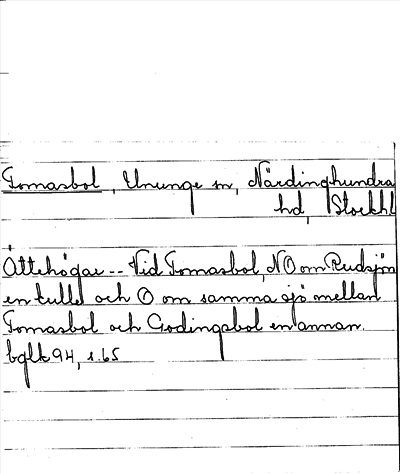 Tomasbol, Ununge sn, Närdinghundra
hd, Stockhl
Ättehögar -- Vid Tomasbol, NO om Rudsjön
en kulle och O om samma sjö mellan
Tomasbol och Godingsbol en annan.
bglk 94, s. 65